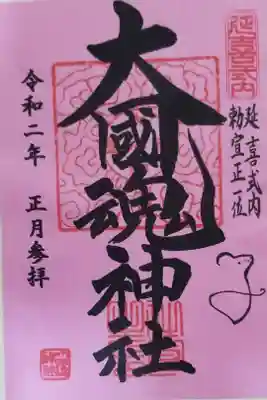 延喜式内
延喜式内
勅宣正一位
子
大國魂神社
令和二年 正月参拝